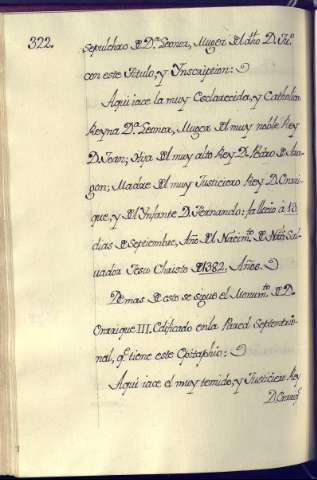 322.
Sepulchro de Dª. Leonor, Muger del dho. D. Juº.
con este Titulo, y Ynscription:
Aqui iace la muy Esclarecida, y Catholica
Reyna Dª. Leonor, Muger del muy noble Rey
D. Joan; Hija del muy alto Rey D. Pedro de Ara-
gon; Madre del muy Justiciero Rey D. Enrri-
que, y del Ynfante D. Fernando: fallecio â 13
dias de Septiembre, Año del Nacimto. de Ntro. Sal-
uador Jesu Christo de 1382. Años.
Demas de esto se sigue el Monumto. de D.
Enrrique III. Edificado en la Pared Septentrio-
nal, q. tiene este Epitaphio:
Aqui iace el muy temido, y Justiciero Rey
D. Enrriq.